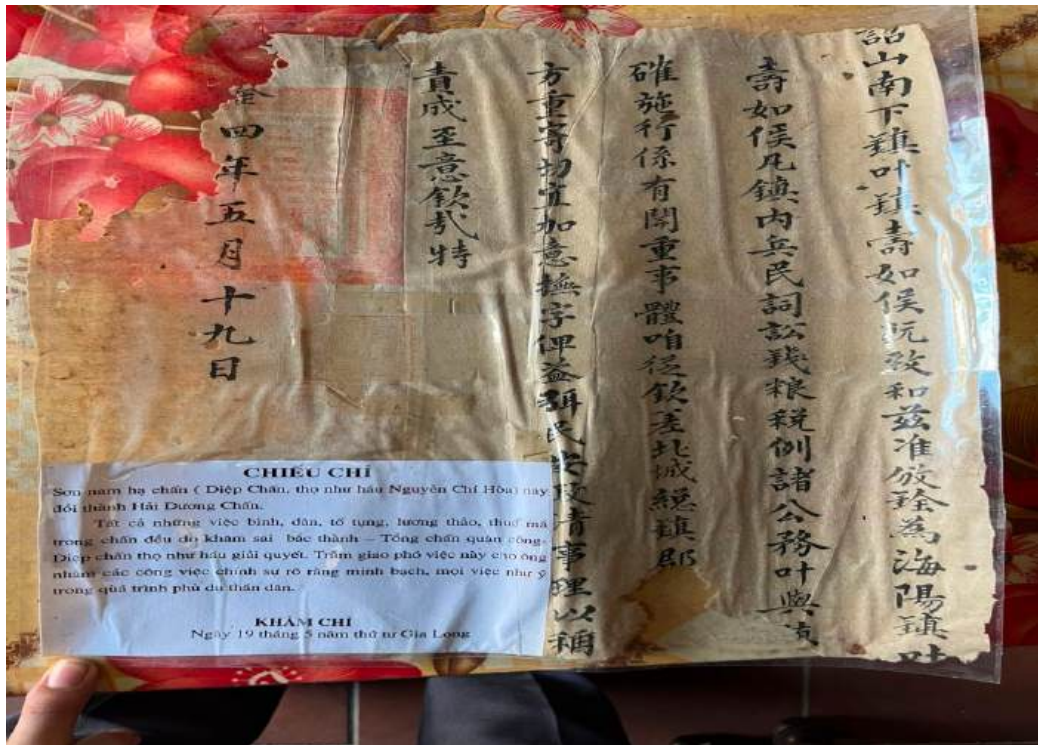 詔山南下鎮叶鎮壽如侯阮致和茲准倣銓為海陽鎮叶
壽如侯凡鎮內兵民詞訟錢粮税例諸公務叶與
確施行係有関重事體咱從欽差北城緫鎮郡
方重寄切宜加意撫字俾益弭民清事理以稱
責成至意欽哉特
四年五月十九日
CHIẾU CHỈ
Sơn nam hạ chấn ( Diệp Chấn, thọ như hầu Nguyễn Chí Hòa) nay
đổi thành Hải Dương Chấn.
Tất cả những việc binh, dân, tố tụng, lương thảo, thuế má
trong chấn đều do khâm sai bắc thành – Tổng chấn quận công-
Diệp chấn thọ như hầu giải quyết. Trẫm giao phó việc này cho ông
nhằm các công việc chính sự rõ ràng minh bạch, mọi việc như ý
trong quá trình phủ dụ thần dân.
KHÂM CHỈ
Ngày 19 tháng 5 năm thứ tư Gia Long